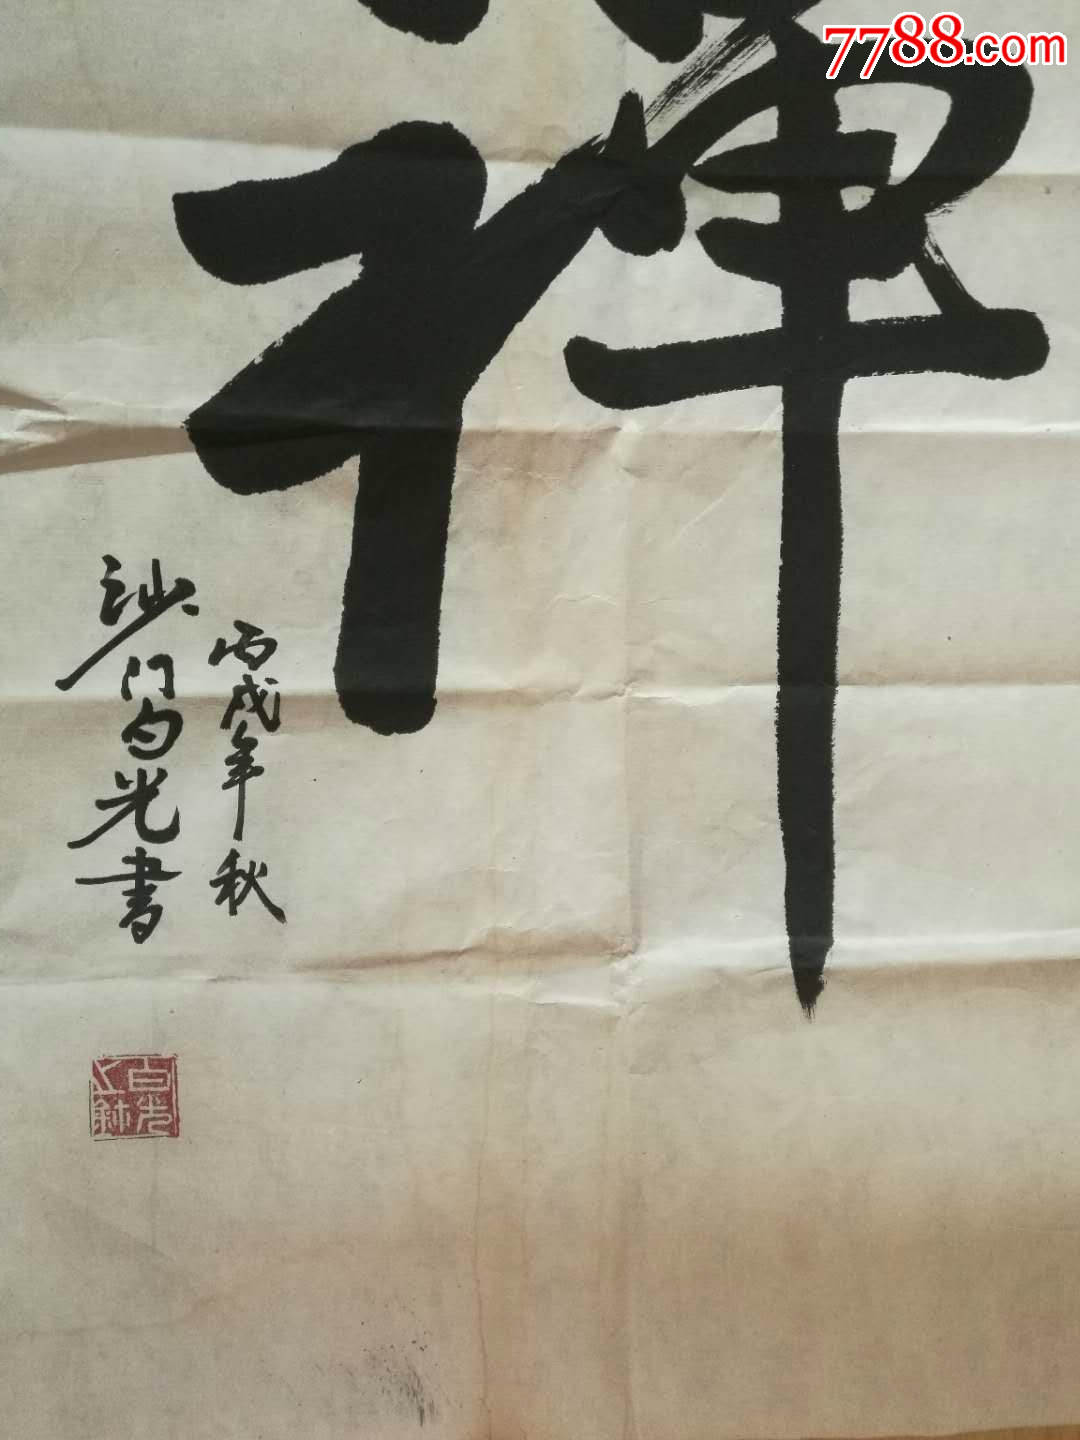 7788.com
禅
丙戌年秋
沙门白光书
白光之鉥